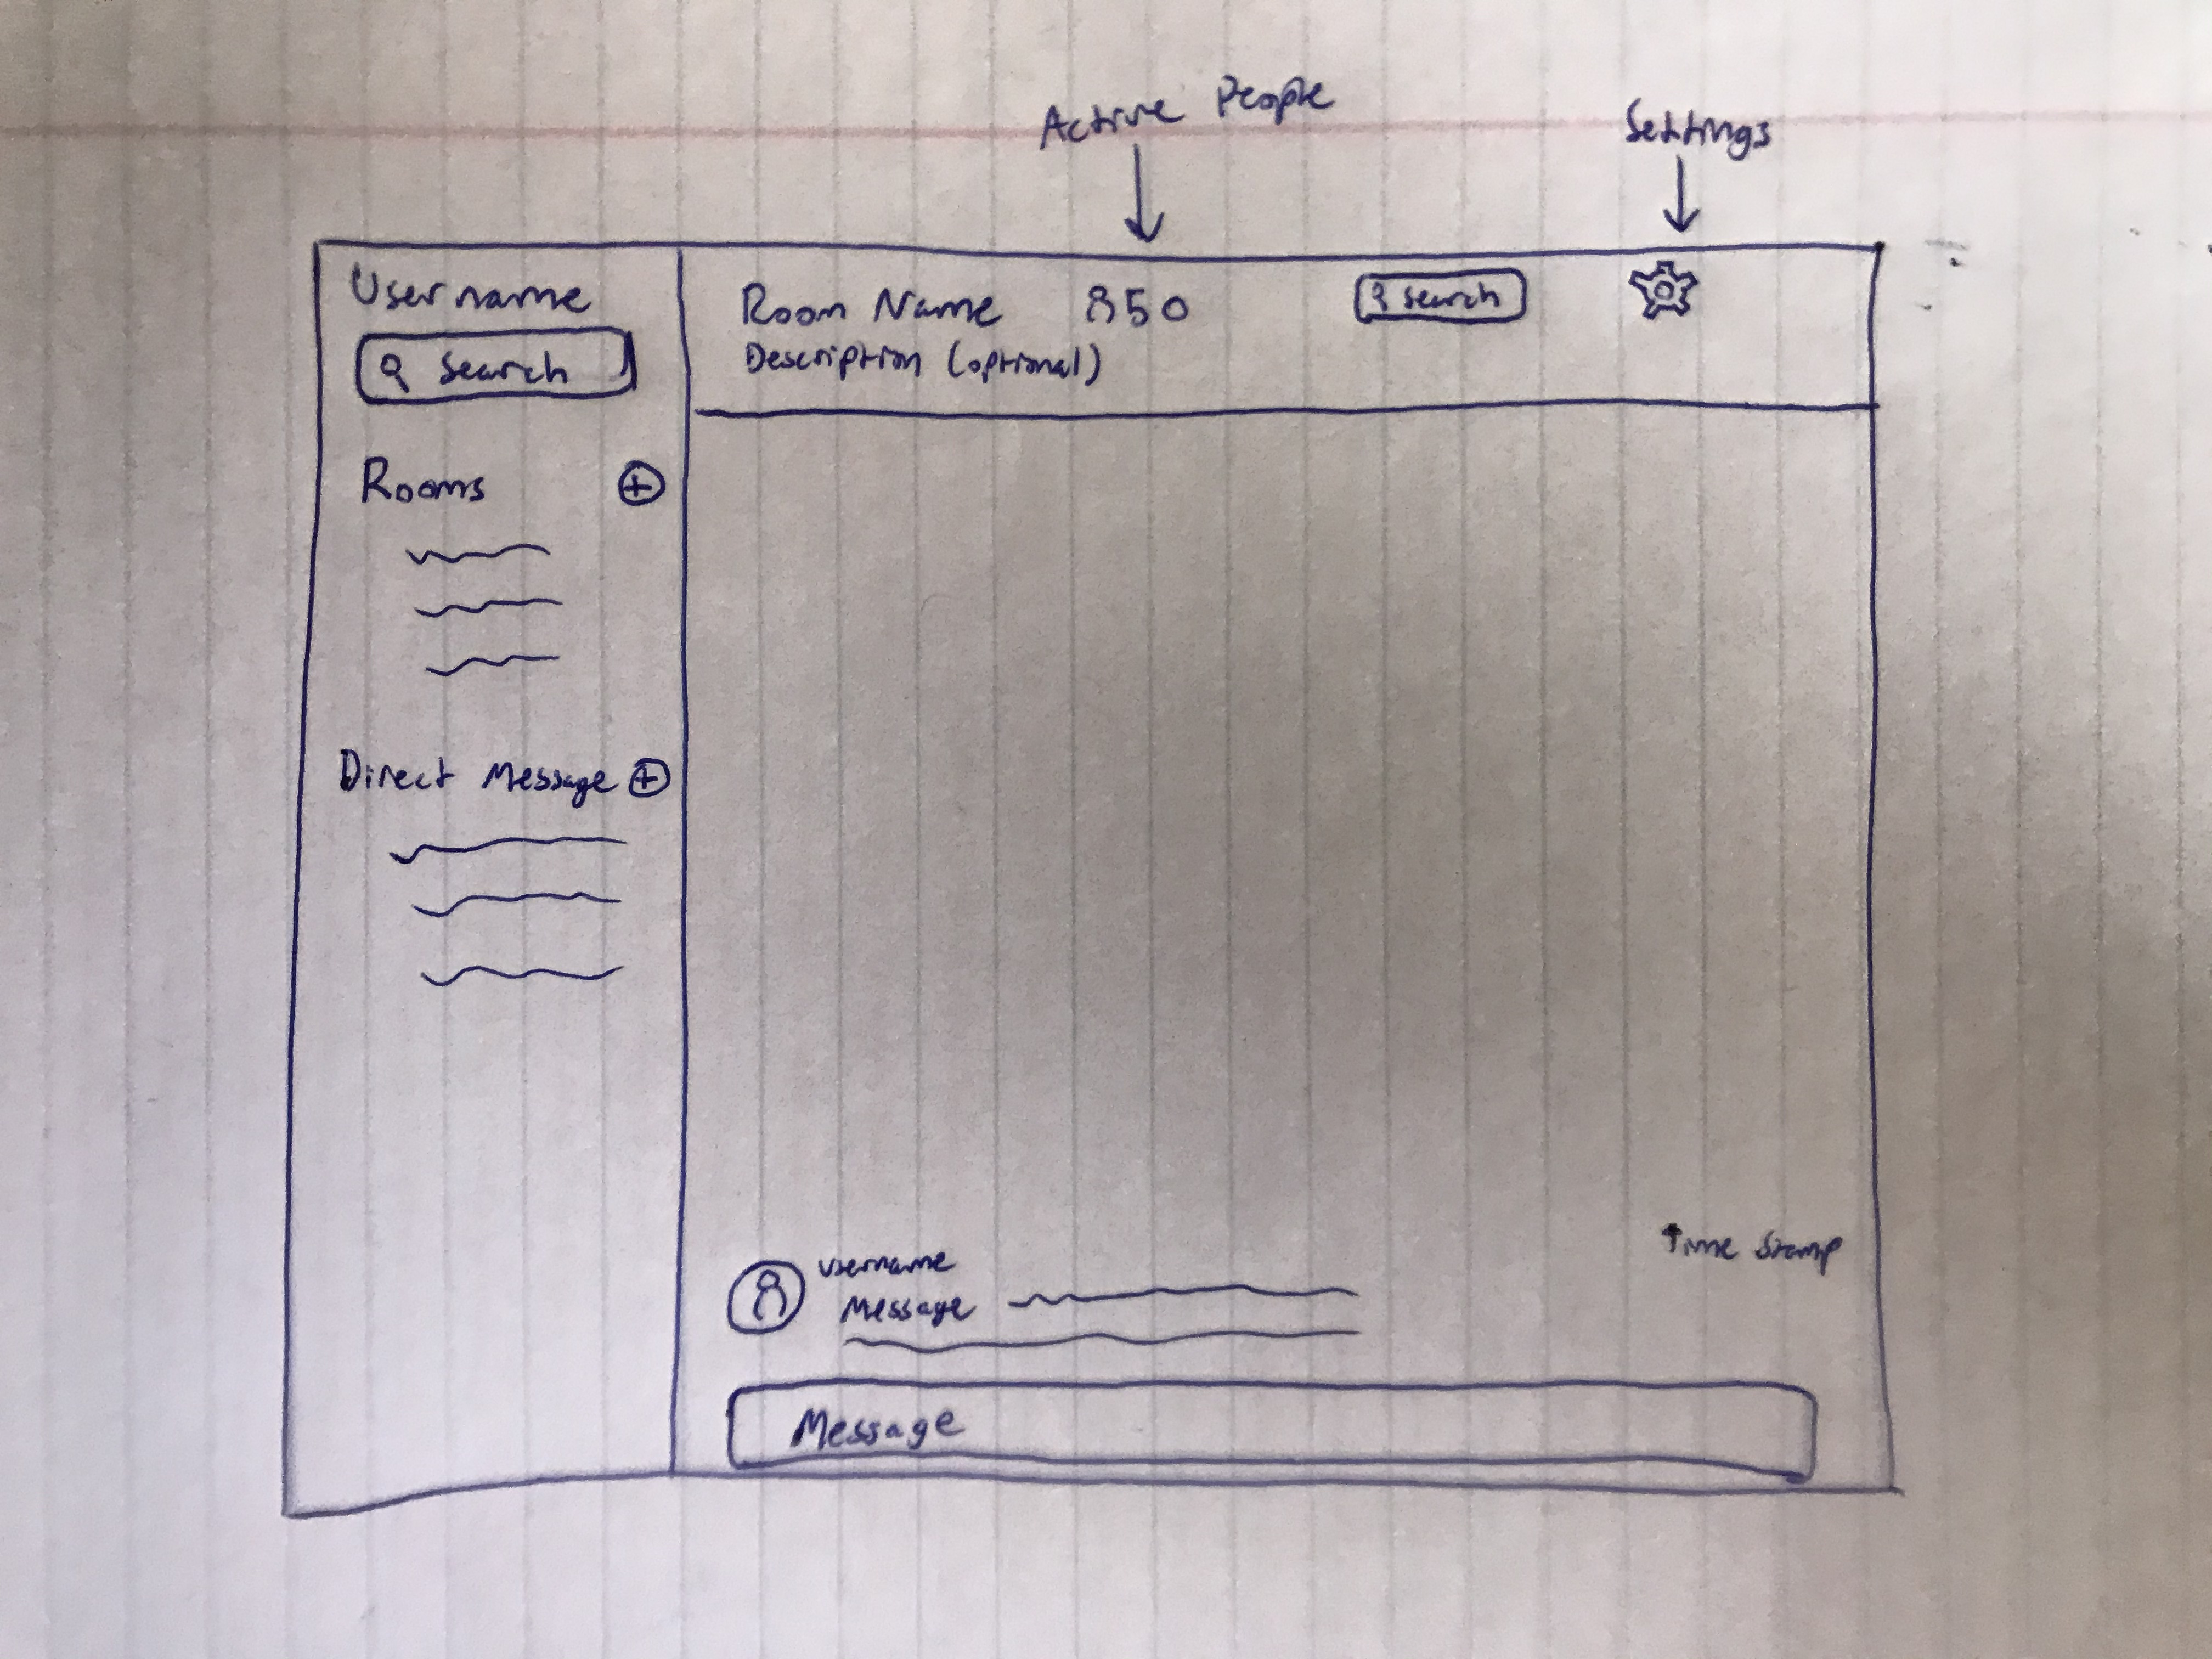 Active People
Settings
Username
Search
Rooms
Direct Message
Room Name 50
Description (optional)
Search
Time Stamp
username
Message
Message